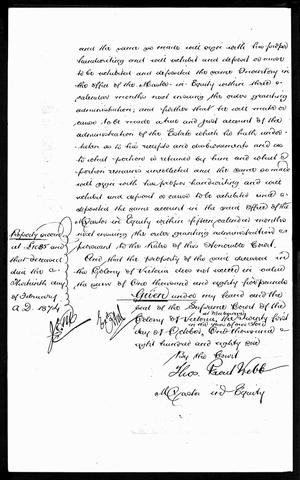 and the same so made will sign with his proper
handwriting and will exhibit and deposit or cause
to be exhibited and deposited the same Inventory in
the office of the Master-in-Equity within three
calendar months next ensuing the order granting
administration, and further that he will make or
cause to be made a true and just account of the
administration of the Estate which he hath under-
taken as to his receipts and disbursements and as
to what portion is retained by him and what
portion remains uncollected and the same so made
will sign with his proper handwriting and will
exhibit and deposit or cause to be exhibited and
deposited the same account in the said office of the
Master in Equity within fifteen calendar months
next ensuing the order granting administration as
pursuant to the Rules of this Honorable Court.
And that the property of the said deceased in
the Colony of Victoria does not exceed in value
the sum of One thousand and eighty five pounds
Given under my hand and the
seal of the Supreme Court of the
Colony of Victoria, at Melbourne this twenty first
day of October, in the year of our Lord One thousand
eight hundred and eighty one
By the Court
Property sworn
at £1085 and
that deceased
died the
thirtieth day
of February
A.D. 1874
Master in Equity